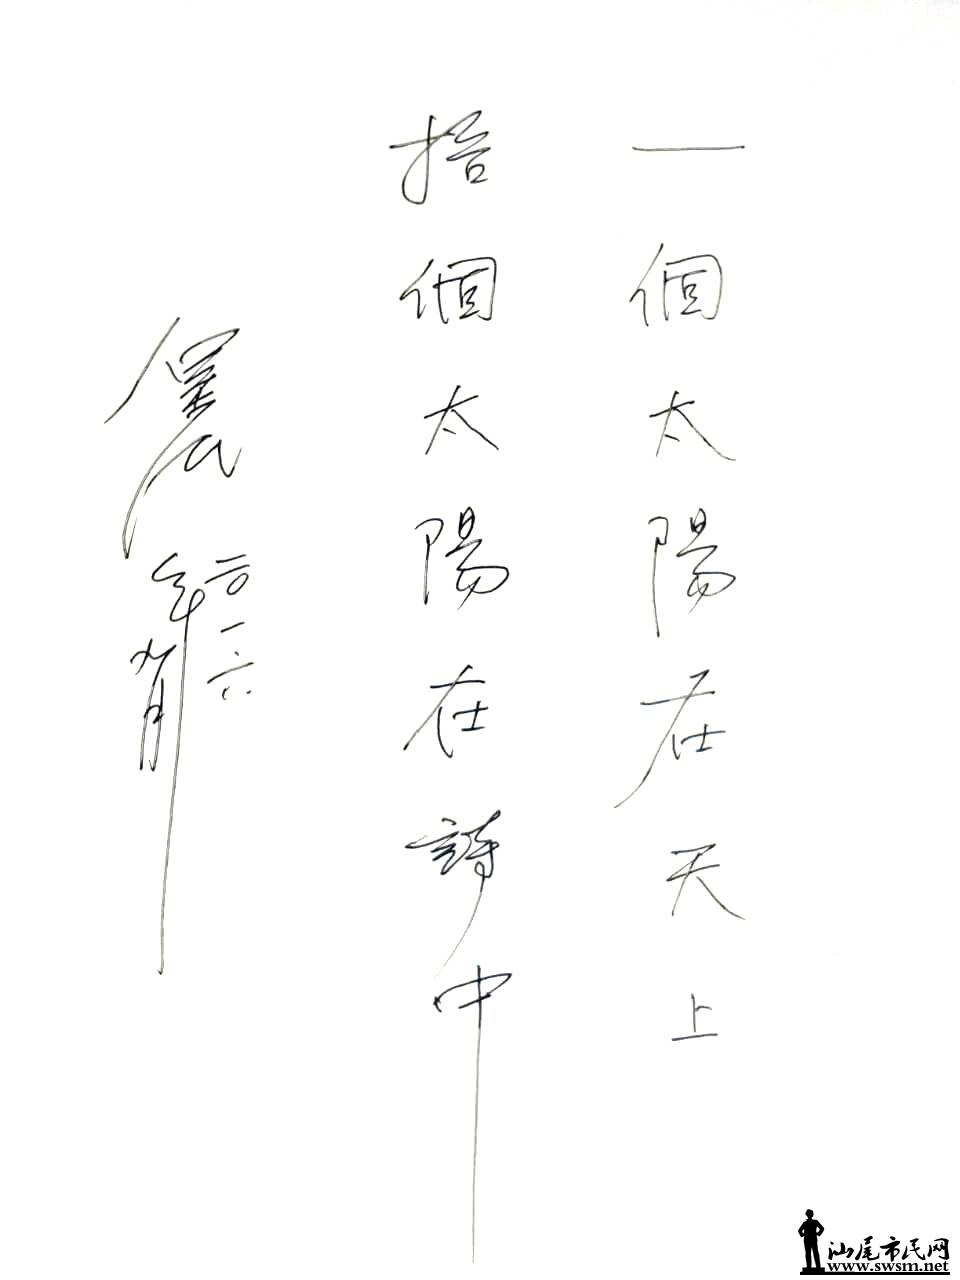 一個太陽在天上
拾個太陽在詩中
二〇一六
年九月
汕尾市民网
www.swsm.net